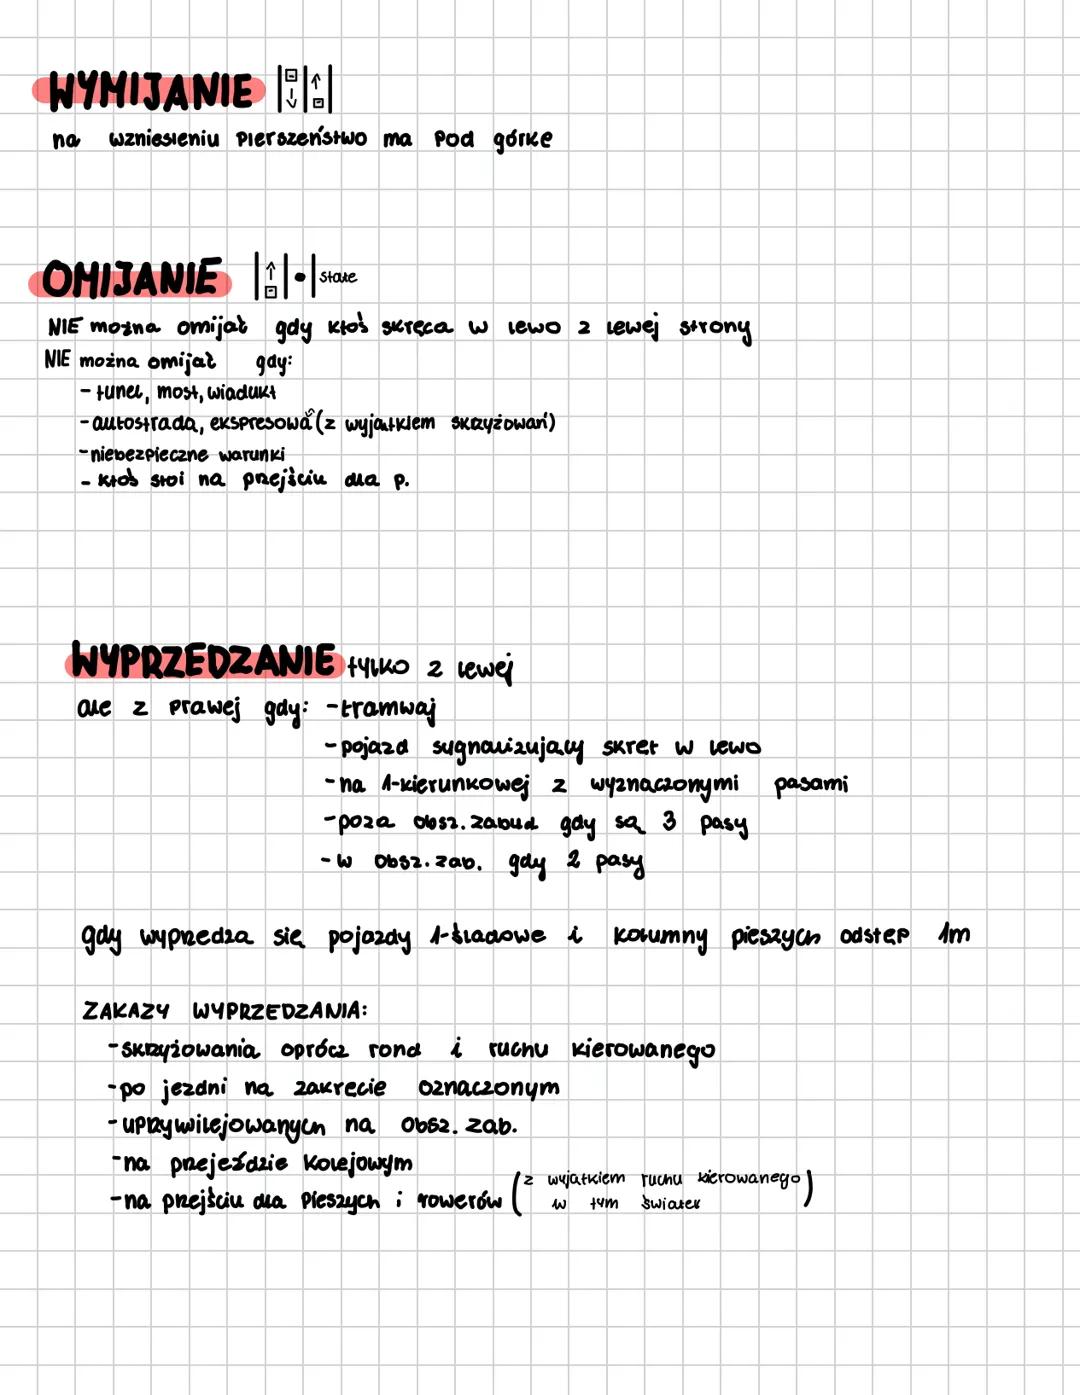 WYMIJANIE
na wzniesieniu pierszeństwo ma pod górkę
OMIJANIE stałe
NIE można omijać gdy ktoś skręca w lewo z lewej strony
NIE można omijać gdy:
- tunel, most, wiadukt
- autostrada, ekspresowa (z wyjątkiem skrzyżowań)
- niebezpieczne warunki
- ktoś stoi na przejściu dla p.
WYPRZEDZANIE tylko z lewej
ale z prawej gdy: - tramwaj
- pojazd sygnalizujący skręt w lewo
- na 1-kierunkowej z wyznaczonymi pasami
- poza obsz. zabud gdy są 3 pasy
- w obsz. zab. gdy 2 pasy
gdy wyprzedza się pojazdy 1-śladowe i kolumny pieszych odstęp 1m
ZAKAZY WYPRZEDZANIA:
- skrzyżowania oprócz rond i ruchu kierowanego
- po jezdni na zakręcie oznaczonym
- uprzywilejowanych na obsz. zab.
- na przejeździe kolejowym
- na przejściu dla pieszych i rowerów (z wyjątkiem ruchu kierowanego
w tym świateł)